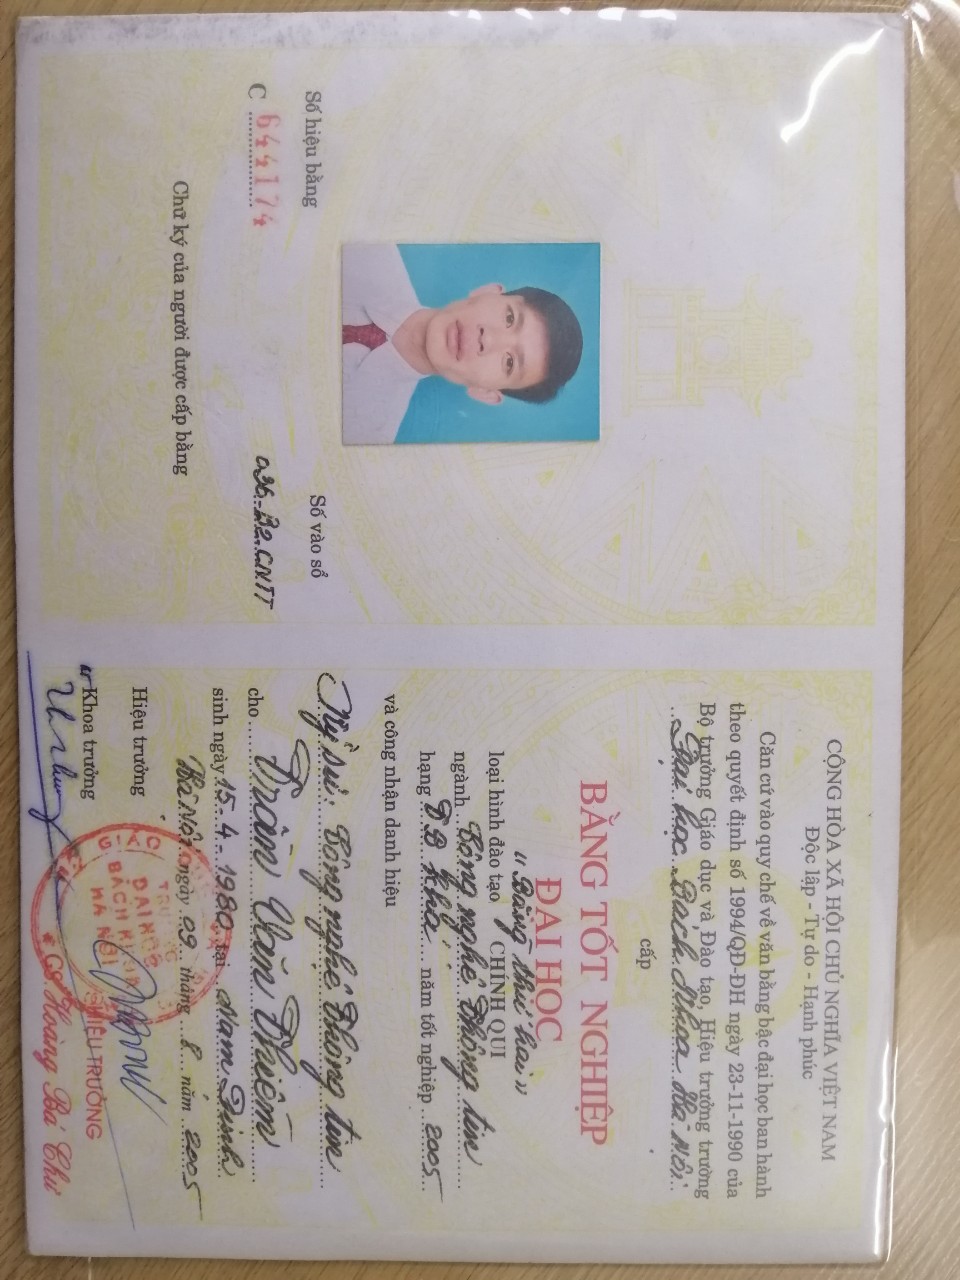 Số hiệu bằng
C 644174
Số vào sổ
Chữ ký của người được cấp bằng
CỘNG HÒA XÃ HỘI CHỦ NGHĨA VIỆT NAM
Độc lập - Tự do - Hạnh phúc
Căn cứ vào quy chế về văn bằng bậc đại học ban hành
theo quyết định số 1994/QĐ-ĐH ngày 23-11-1990 của
Bộ trưởng Giáo dục và Đào tạo, Hiệu trưởng trường
Đại học Bách Khoa Hà Nội
cấp
BẰNG TỐT NGHIỆP
ĐẠI HỌC
"Bằng thứ hai"
loại hình đào tạo CHÍNH QUI
ngành Công nghệ Thông tin
hạng TB Khá năm tốt nghiệp 2005
và công nhận danh hiệu
Kỹ sư: Công nghệ Thông tin
cho Trần Văn Thiêm
sinh ngày 15-4-1980 tại Nam Định
Hà Nội ngày 09 tháng 8 năm 2005
Hiệu trưởng
Khoa trưởng
ĐẠI HỌC
BÁCH KHOA
HÀ NỘI
HIỆU TRƯỞNG
Hoàng Bá Chư